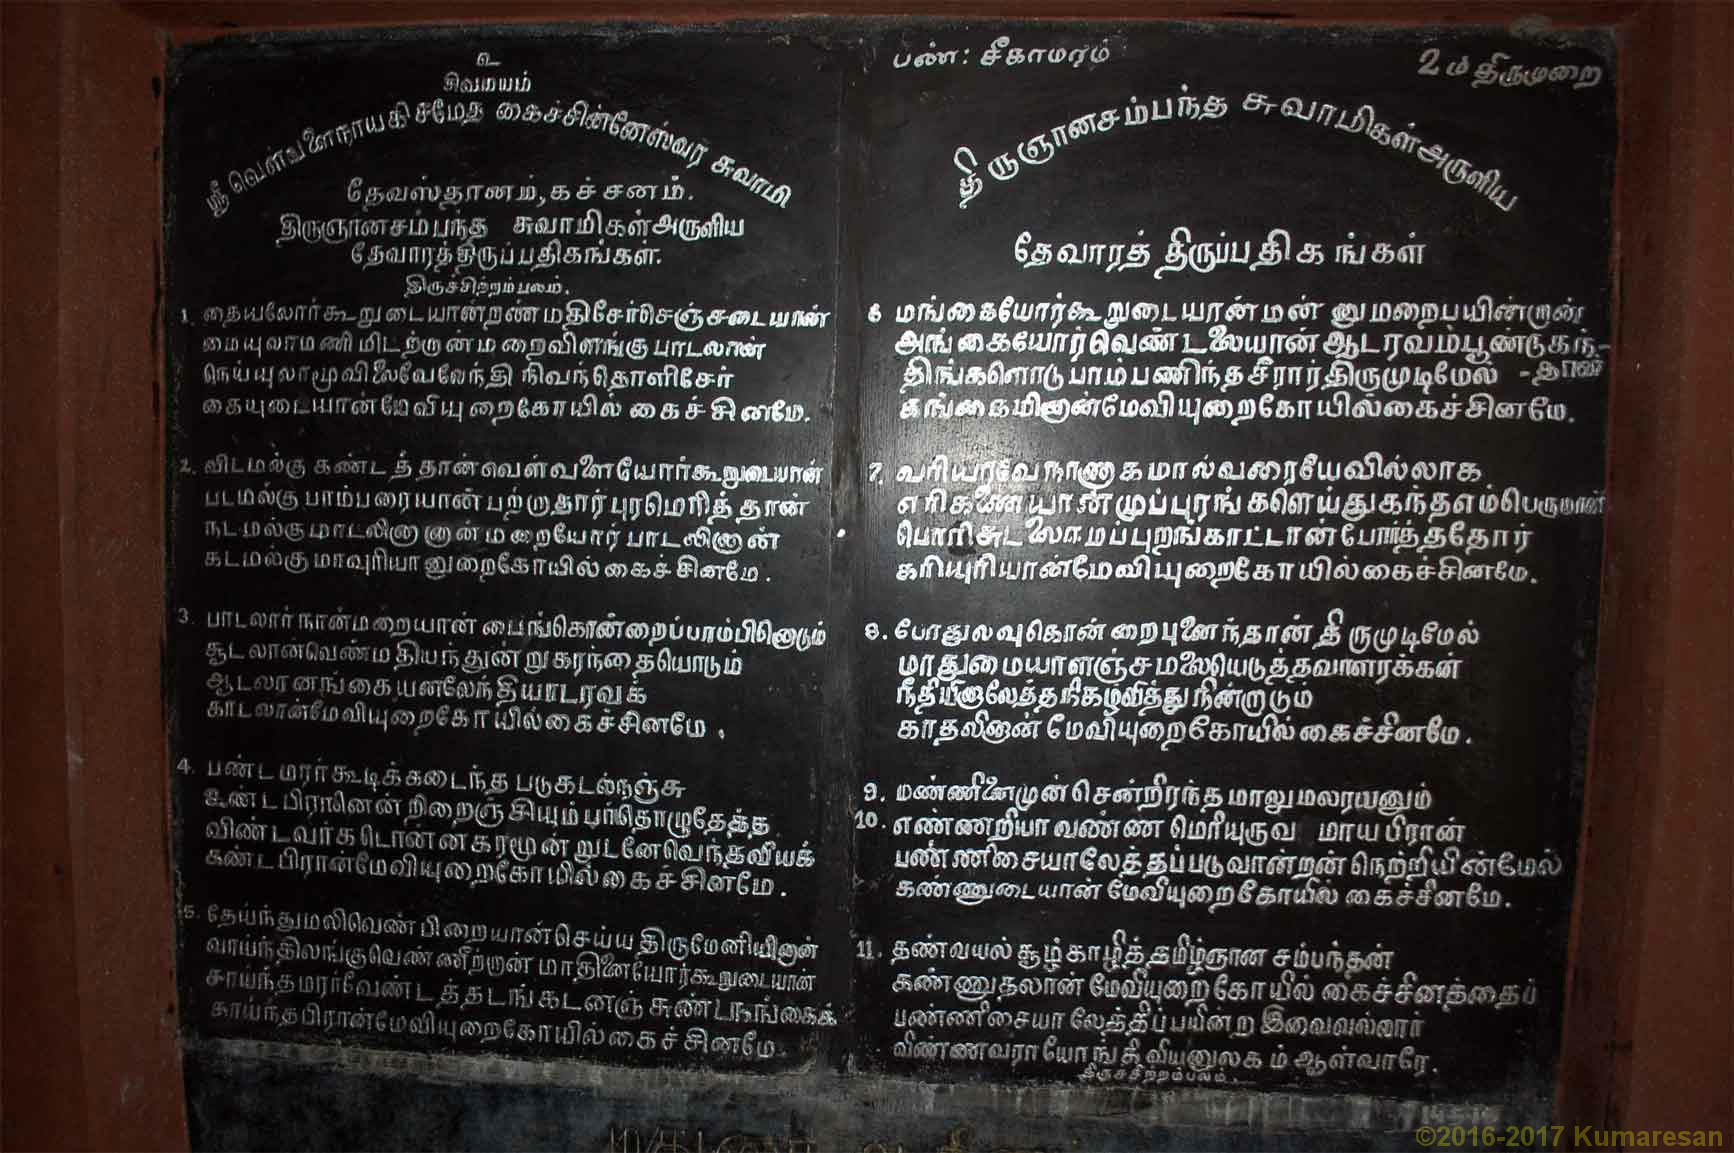 உ
சிவமயம்
ஸ்ரீ வெள்வளைநாயகி சமேத கைச்சின்னேஸ்வர சுவாமி
தேவஸ்தானம், கச்சனம்.
திருஞானசம்பந்த சுவாமிகள் அருளிய
தேவாரத்திருப்பதிகங்கள்.
திருச்சிற்றம்பலம்.
1. தையலோர்கூறுடையான்றண்மதிசேர்செஞ்சடையான்
மையுலாமணிமிடற்றான்மறைவிளங்கு பாடலான்
நெய்யுலாமூவிலைவேலேந்தி நிவந்தொளிசேர்
கையுடையான்மேவியுறைகோயில் கைச்சினமே.
2. விடமல்கு கண்டத்தான்வெள்வளையோர்கூறுடையான்
படமல்கு பாம்பரையான் பற்றாதார்புரமெரித்தான்
நடமல்குமாடலினான்மறையோர் பாடலினான்
கடமல்குமாவுரியானுறைகோயில் கைச்சினமே.
3. பாடலார்நான்மறையான் பைங்கொன்றைப்பாம்பினொடும்
சூடலான்வெண்மதியந்துன்றுகரந்தையொடும்
ஆடலரனங்கையனலேந்தியாடரவக்
காடலான்மேவியுறைகோயில்கைச்சினமே.
4. பண்டமரர்கூடிக்கடைந்த படுகடல்நஞ்சு
உண்டபிரானென்றிறைஞ்சியும்பர்தொழுதேத்த
விண்டவர்கடொன்னகரமூன்றுடனேவெந்தவியக்
கண்டபிரான்மேவியுறைகோயில்கைச்சினமே.
5. தேய்ந்துமலிவெண்பிறையான்செய்யதிருமேனியினான்
வாய்ந்திலங்குவெண்ணீற்றான் மாதினையோர்கூறுடையான்
சாய்ந்தமரர்வேண்டத்தடங்கடனஞ்சுண்டநங்கைக்
காய்ந்தபிரான்மேவியுறைகோயில்கைச்சினமே.
பண்: சீகாமரம்
2ம் திருமுறை
திருஞானசம்பந்த சுவாமிகள் அருளிய
தேவாரத் திருப்பதிகங்கள்
6 மங்கையோர்கூறுடையான்மன்னுமறைபயின்றான்
அங்கையோர்வெண்டலையான் ஆடரவம்பூண்டுகந்-
-தான்
திங்களொடுபாம்பணிந்தசீரார்திருமுடிமேல்
கங்கையினான்மேவியுறைகோயில்கைச்சினமே.
7. வரியரவேநாணாகமால்வரையேவில்லாக
எரிகணையான்முப்புரங்களெய்துகந்தஎம்பெருமான்
பொரிசுடலைஈமப்புறங்காட்டான்போர்த்ததோர்
கரியுரியான்மேவியுறைகோயில்கைச்சினமே.
8. போதுலவுகொன்றைபுனைந்தான் திருமுடிமேல்
மாதுமையாளஞ்சமலையெடுத்தவாளரக்கன்
நீதியினாலேத்தநிகழ்வித்துநின்றாடும்
காதலினான் மேவியுறைகோயில் கைச்சினமே.
9. மண்ணினைமுன்சென்றிரந்தமாலுமலரயனும்
10. எண்ணறியா வண்ண மெரியுருவ மாயபிரான்
பண்ணிசையாலேத்தப்படுவான்றன்நெற்றியின்மேல்
கண்ணுடையான் மேவியுறைகோயில் கைச்சினமே.
11. தண்வயல்சூழ்காழித்தமிழ்ஞான சம்பந்தன்
கண்ணுதலான் மேவியுறைகோயில் கைச்சினத்தைப்
பண்ணிசையாலேத்திப்பயின்ற இவைவல்லார்
விண்ணவராயோங்கிவியனுலகம் ஆள்வாரே.
திருச்சிற்றம்பலம்.
©2016-2017 Kumaresan